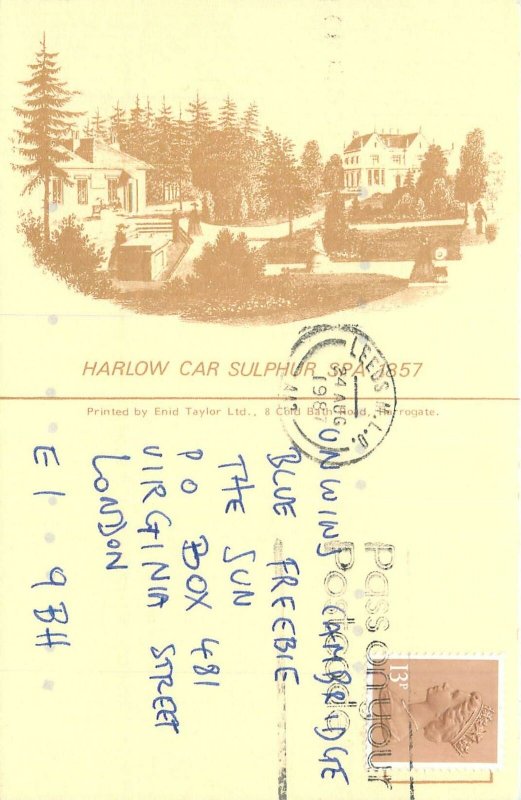 HARLOW CAR SULPHUR SPA 1857
Printed by Enid Taylor Ltd., 8 Cold Bath Road, Harrogate.
LEEDS M.L.O.
24 AUG
1987
Pass on your
Postcode
13P
UNWINS CAMBRIDGE
BLUE FREEBIE
THE SUN
P O BOX 481
VIRGINIA STREET
LONDON
E1 9BH